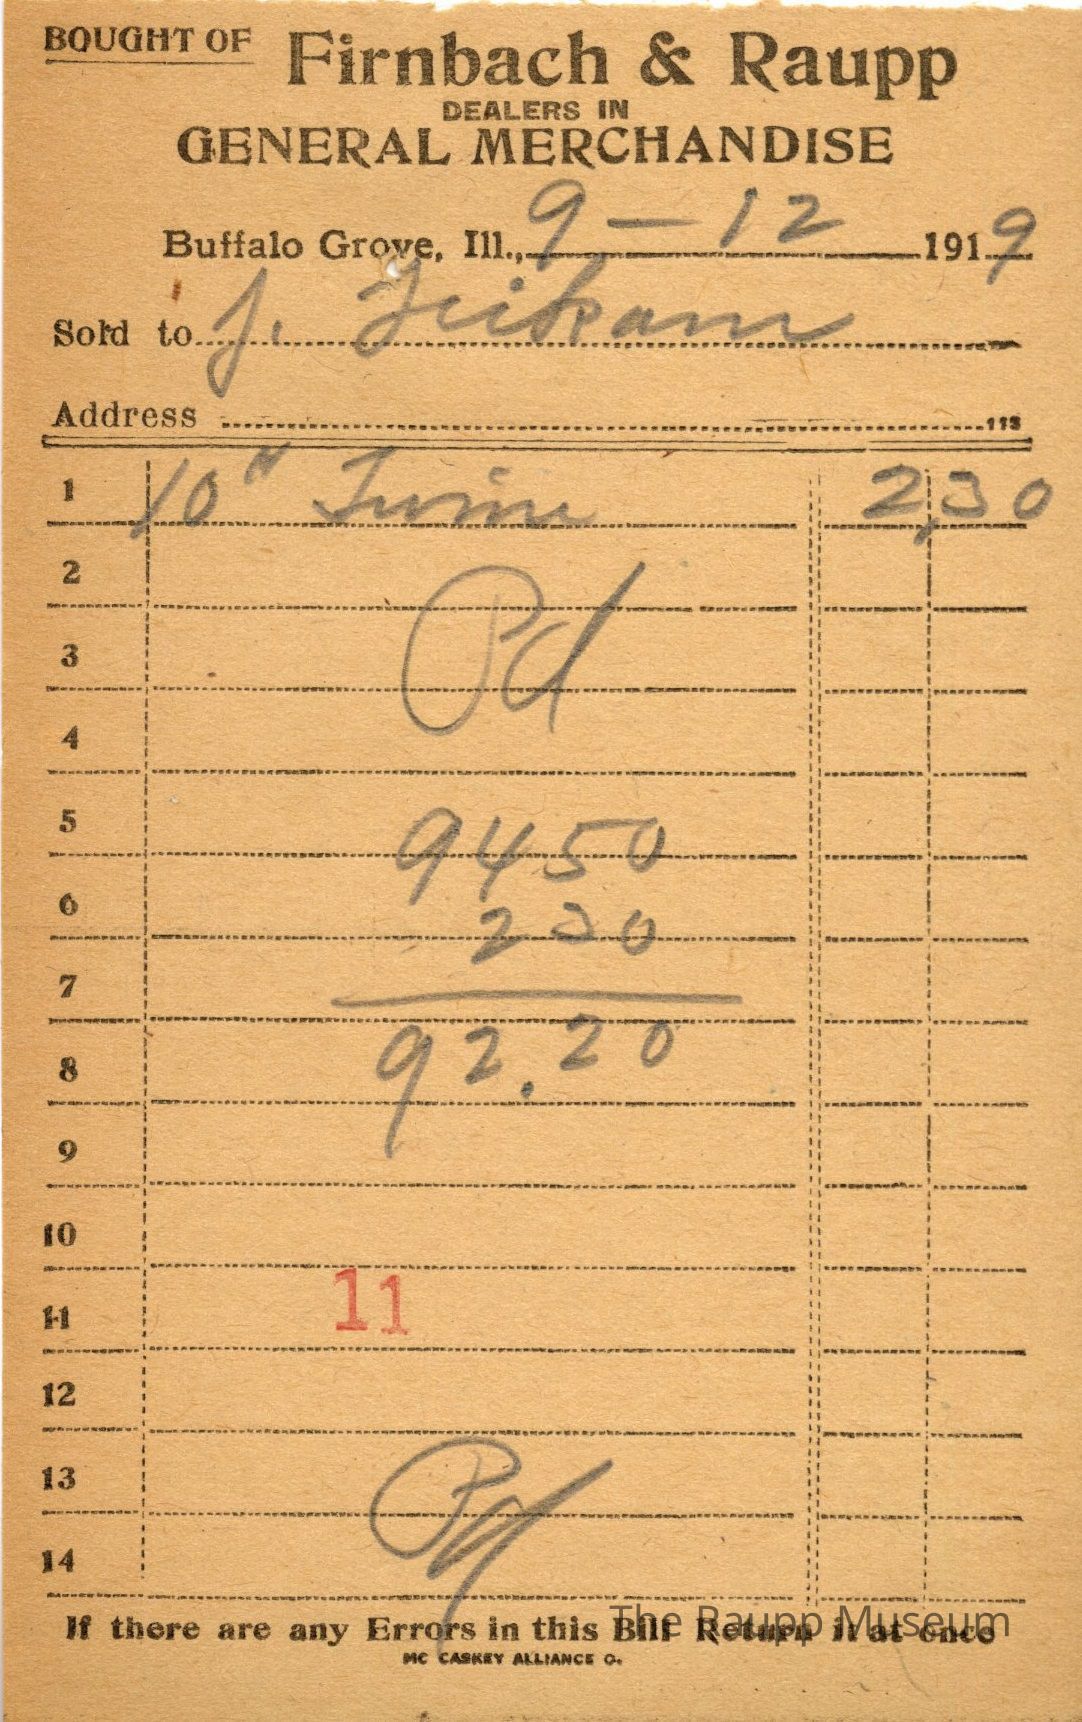 BOUGHT OF Firnbach & Raupp
DEALERS IN
GENERAL MERCHANDISE
Buffalo Grove, Ill., 9 - 12 1919
Sold to J.
Address 113
1 10# Twine 2,30
2
Pd
3
4
5 9450
6 230
7
8 92.20
9
10
11 11
12
13 Pd
14
If there are any Errors in this Bill Return it at once
The Raupp Museum
MC CASKEY ALLIANCE O.